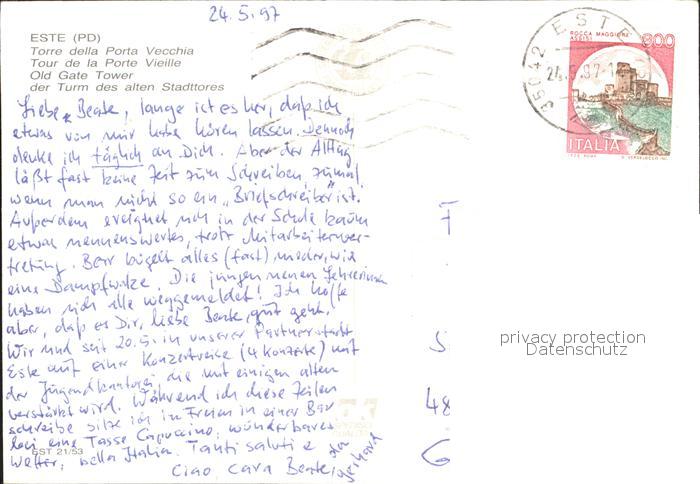 24.5.97
ESTE (PD)
Torre della Porta Vecchia
Tour de la Porte Vieille
Old Gate Tower
der Turm des alten Stadttores
Liebe Beate, lange ist es her, daß ich
etwas von mir habe hören lassen. Dennoch
denke ich täglich an Dich. Aber der Alltag
läßt fast keine Zeit zum Schreiben zumal
wenn man nicht so ein „Briefschreiber" ist.
Außerdem ereignet sich in der Schule kaum
etwas nennenswertes, trotz Mitarbeiterver-
tretung. Bär bügelt alles (fast) nieder, wie
eine Dampfwalze. Die jungen neuen Lehrerinnen
haben sich alle weggemeldet! Ich hoffe
aber, daß es Dir, liebe Beate, gut geht.
Wir sind seit 20.5. in unserer Partnerstadt
Este auf einer Konzertreise (4 Konzerte) mit
der Jugendkantorei die mit einigen alten
verstärkt wird. Während ich diese Zeilen
schreibe sitze ich im Freien in einer Bar
bei eine Tasse Capuccino, wunderbares
Wetter, bella Italia. Tanti saluti e
Ciao cara Beate
EST 21/53
ROCCA MAGGIORE
ASSISI
800
35042 ESTE
24.5.97
ITALIA
privacy protection
Datenschutz
48